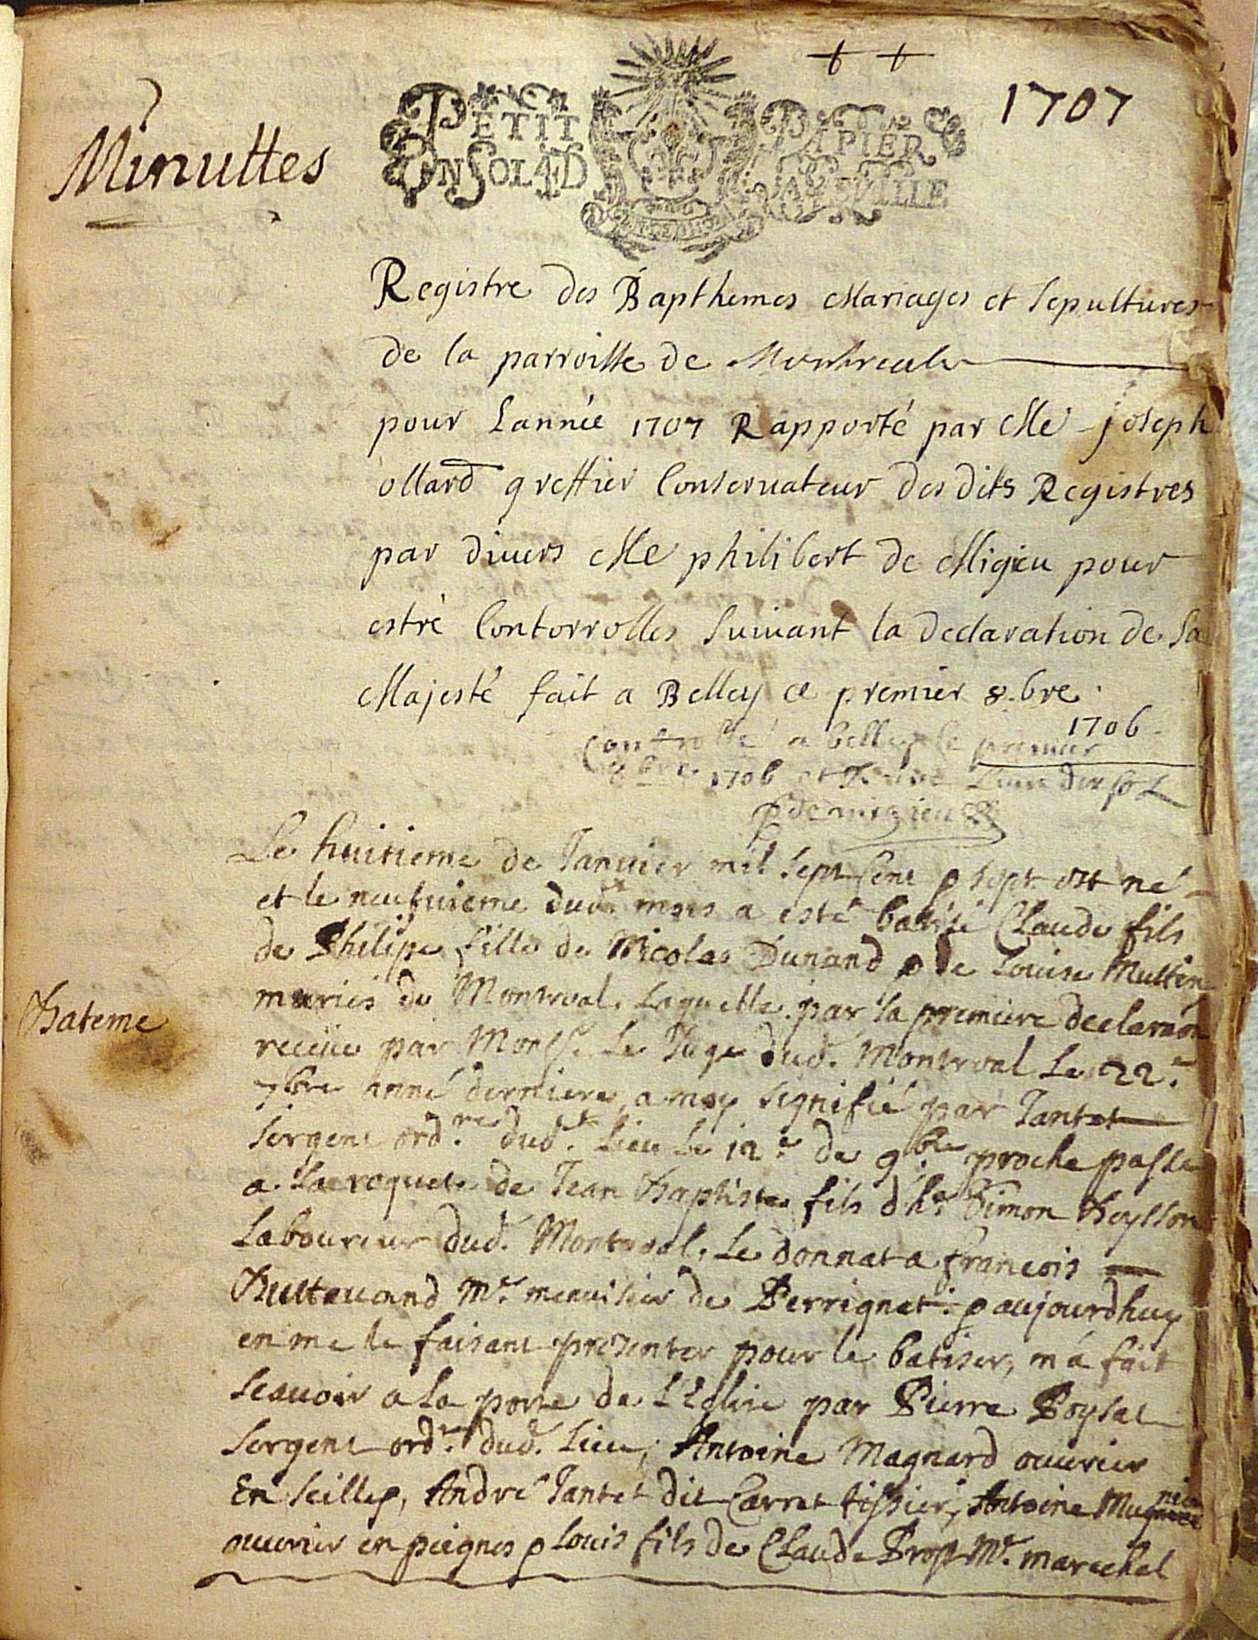 1707
Minuttes
PETIT PAPIER
UN SOL 4 D LA FEUILLE
Registre des Bapthemes Mariages et sepultures
de la parroisse de Montreal
pour Lannée 1707 Rapporté par Me joseph
ollard greffier Conservateur des dits Registres
par divers Me philibert de Migieu pour
estré Contorrolles suivant la declaration de Sa
Majesté fait a Belley ce premier 8.bre
1706
Controllé a belley le premier
8bre 1706 et
p demigieu
Le huitieme de Januier mil sept cent & sept est né
et le neufuieme dud.t mois a esté batisé Claude fils
de Philipe fille de Nicolas Dunand & de Louise Mutin
mariés de Montreal. Laquelle par sa premiere declaraon
receüe par Mons.r Le Juge dud. Montreal Le 22.e
7bre anné derniere, a moy signifié par Tantet
sergent ord.re dud.t Lieu Le 12.e de 9.bre proche passé
Bateme
a La requet. de Jean Baptiste fils d'h.e Simon Beysson
Laboureur dud. Montreal. Le donnat a francois
Buttauand M.e menuisier de Perrignat. & aujourdhuy
en me le faisant presenter pour le batiser, m'á fait
scauoir a La porte de L'Eglise par Pierre Poysat
sergent ord.re dud. Lieu, Antoine Magnard ouurier
En seilles, André Tantet dit Carret tissier, Antoine
ouurier en peignes & Louis fils de Claude Prost M.e marechal